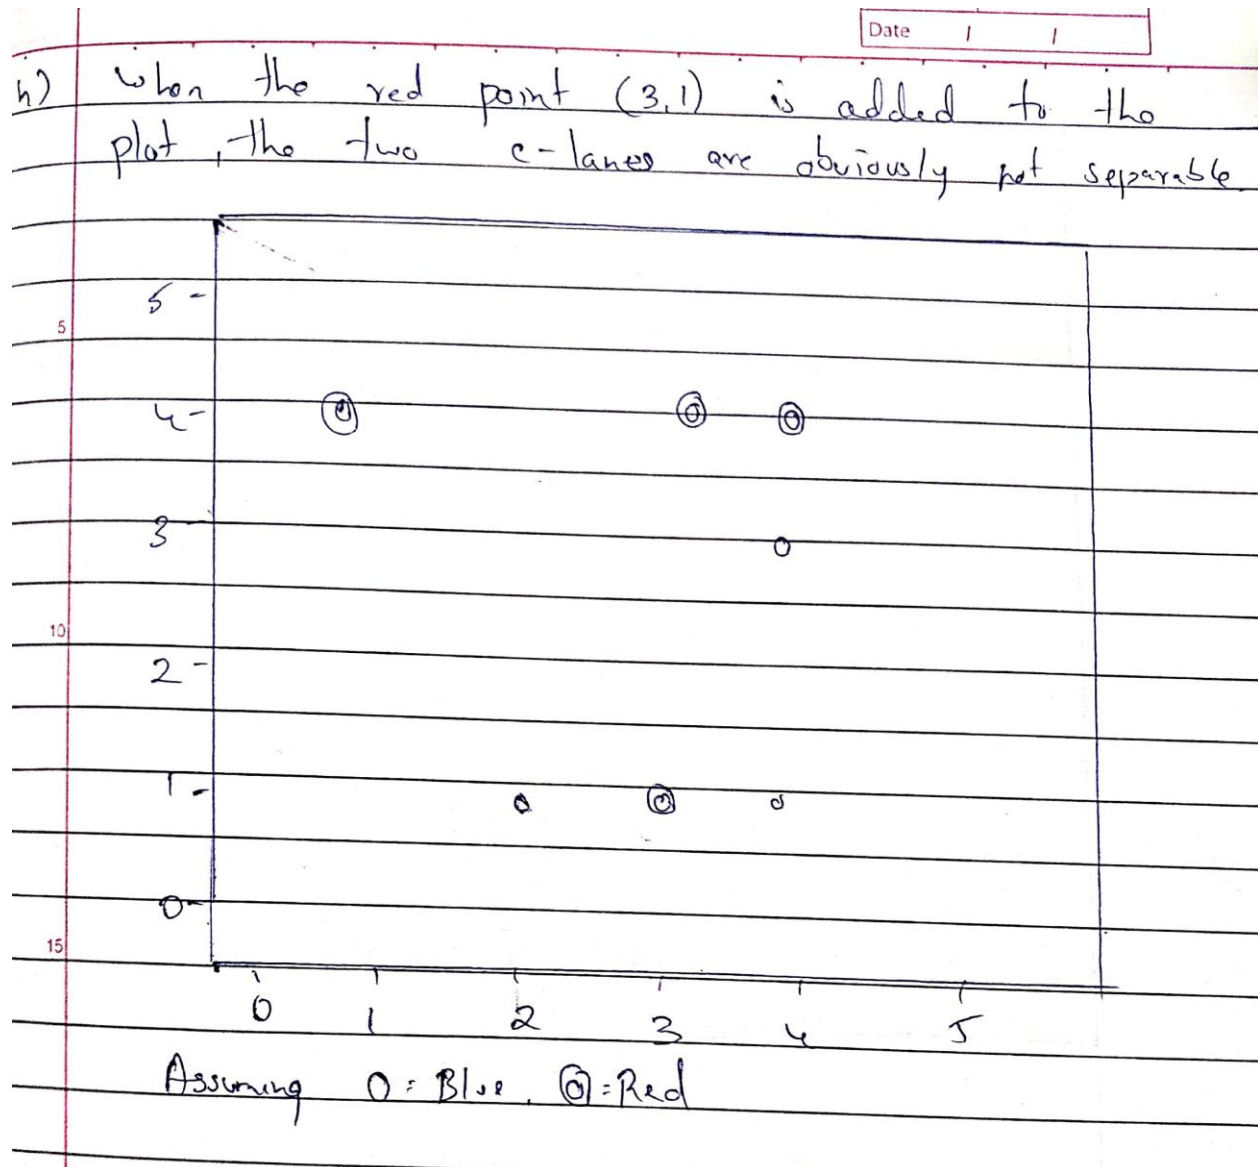 Date / /
h) when the red point (3,1) is added to the
plot, the two c-lanes are obviously not separable
5 -
5
4 -
3 -
10
2 -
1 -
0 -
15
0 1 2 3 4 5
Assuming O = Blue, ◎ = Red